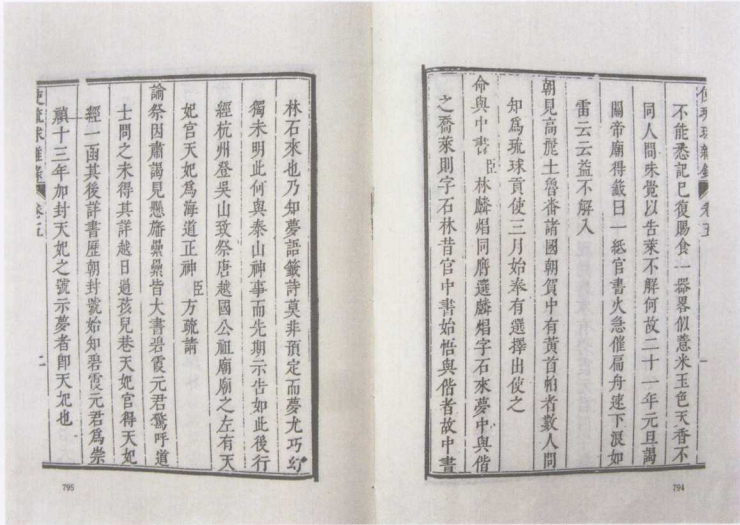 使琉球雜錄 卷五 一
不能悉記巳復賜食一器畧似薏米玉色天香不
同人間味覺以告萊不解何故二十一年元旦謁
關帝廟得籤曰一紙官書火急催扁舟速下浪如
雷云云益不解入
朝見高麗土魯番諸國朝賀中有黃首帕者數人問
知爲琉球貢使三月始奉有選擇出使之
命與中書臣林麟焻同膺選麟焻字石來夢中與偕
之喬萊則字石林昔官中書始悟與偕者故中書
794
林石來也乃知夢語籤詩莫非預定而夢尤巧幻
獨未明此何與泰山神事而先期示告如此後行
經杭州登吳山致祭唐越國公祖廟廟之左有天
妃宮天妃爲海道正神臣方疏請
諭祭因肅謁見懸旛纍纍皆大書碧霞元君驚呼道
士問之未得其詳越日過孩兒巷天妃宮得天妃
經一函其後詳書歷朝封號始知碧霞元君爲崇
禎十三年加封天妃之號示夢者卽天妃也
使琉球雜錄 卷五 二
795